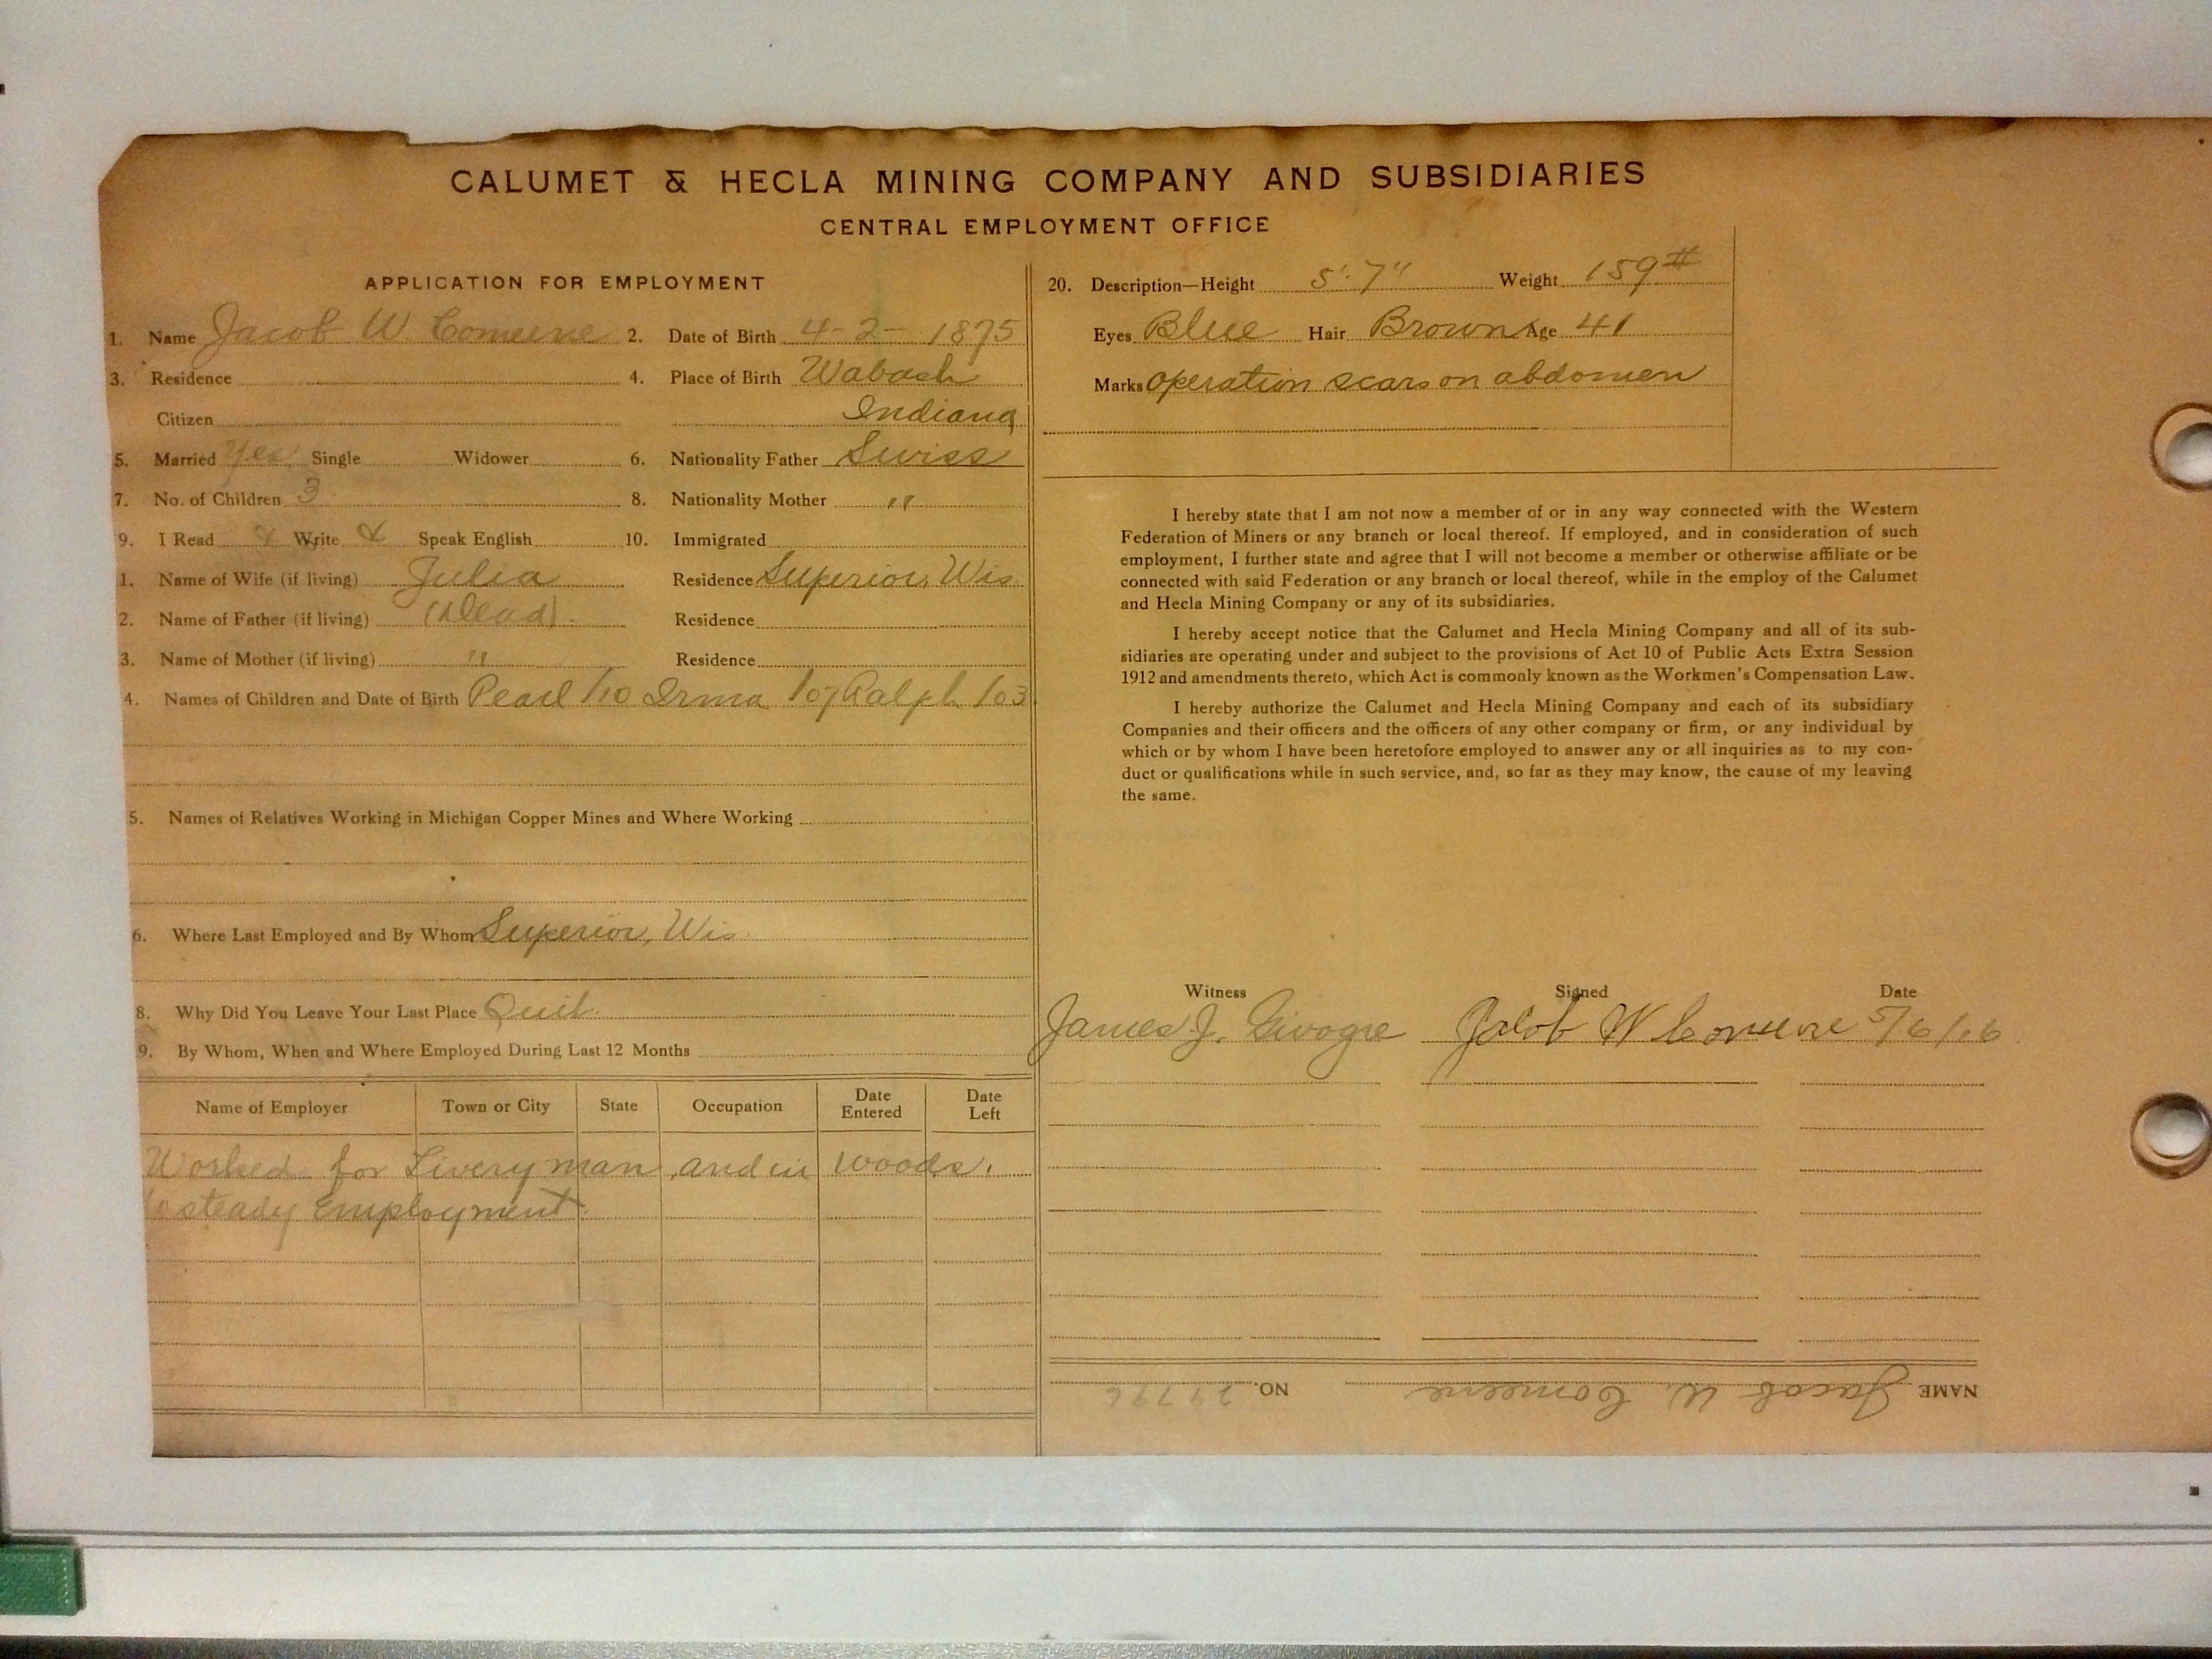 CALUMET & HECLA MINING COMPANY AND SUBSIDIARIES
CENTRAL EMPLOYMENT OFFICE
APPLICATION FOR EMPLOYMENT
1. Name Jacob W. Comeene 2. Date of Birth 4-2-1875
3. Residence 4. Place of Birth Wabash
Citizen Indiana
5. Married Yes Single Widower 6. Nationality Father Swiss
7. No. of Children 3 8. Nationality Mother "
9. I Read Write Speak English 10. Immigrated
1. Name of Wife (if living) Julia Residence Superior, Wis
2. Name of Father (if living) (Dead). Residence
3. Name of Mother (if living) " Residence
4. Names of Children and Date of Birth Pearl /10 Irma /07 Ralph /03
5. Names of Relatives Working in Michigan Copper Mines and Where Working
6. Where Last Employed and By Whom Superior, Wis.
8. Why Did You Leave Your Last Place Quit.
9. By Whom, When and Where Employed During Last 12 Months
Name of Employer Town or City State Occupation Date Entered Date Left
Worked for Livery man and in woods.
steady employment.
20. Description—Height 5'-7" Weight 159#
Eyes Blue Hair Brown Age 41
Marks operation scars on abdomen
I hereby state that I am not now a member of or in any way connected with the Western
Federation of Miners or any branch or local thereof. If employed, and in consideration of such
employment, I further state and agree that I will not become a member or otherwise affiliate or be
connected with said Federation or any branch or local thereof, while in the employ of the Calumet
and Hecla Mining Company or any of its subsidiaries.
I hereby accept notice that the Calumet and Hecla Mining Company and all of its sub-
sidiaries are operating under and subject to the provisions of Act 10 of Public Acts Extra Session
1912 and amendments thereto, which Act is commonly known as the Workmen's Compensation Law.
I hereby authorize the Calumet and Hecla Mining Company and each of its subsidiary
Companies and their officers and the officers of any other company or firm, or any individual by
which or by whom I have been heretofore employed to answer any or all inquiries as to my con-
duct or qualifications while in such service, and, so far as they may know, the cause of my leaving
the same.
Witness Signed Date
James J. Jacob W Comeene 5/6/16
NAME Jacob W. Comeene NO.